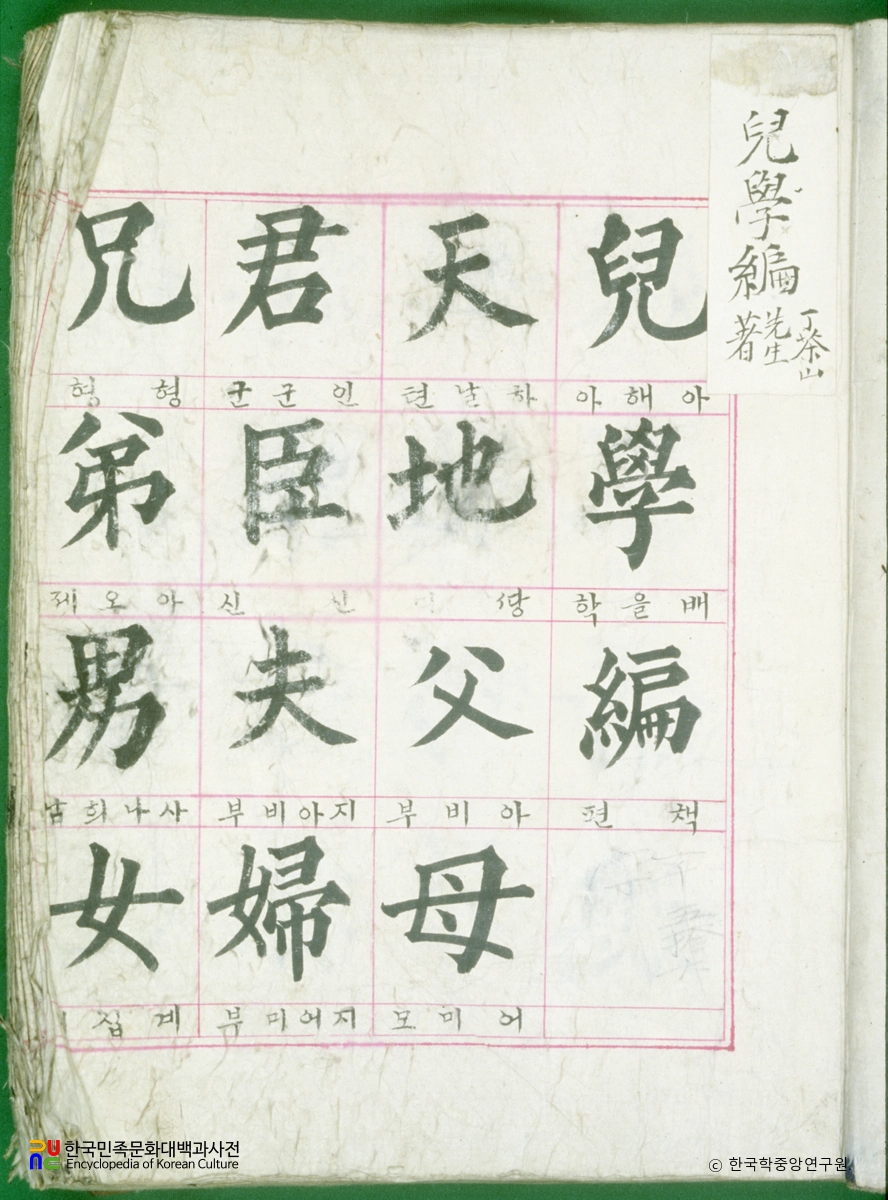 兒學編
丁茶山
先生
著
兒
아해아
學
배울학
編
책편
天
하날텬
地
ᄯᅡᆼ
父
아비부
母
어미모
君
인군군
臣
신신
夫
지아비부
婦
지어미부
兄
형형
弟
아오제
男
사나희남
女
계집
한국민족문화대백과사전
Encyclopedia of Korean Culture
ⓒ 한국학중앙연구원